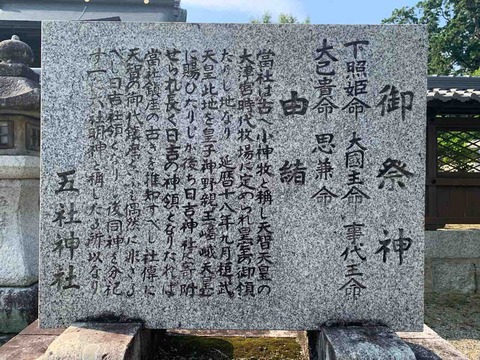 御祭神
下照姫命 大國主命 事代主命
大己貴命 思兼命
由結
當社は古へ小神牧と稱し天智天皇の
大津宮時代牧場に定められ皇室御領
たりし地なり 延暦十八年九月桓武
天皇此地を皇子神野親王嵯峨天皇
に賜ひたりしが後ち日吉神社に寄附
せられ長く日吉の神領となりたれば
當社鎮座の古きを推知すべし 社傳に
天智の御代鎮座と云ふ偶然に非さる
べし日吉社領となり 後同神を分祀
す 十二六社明神と稱したる所以なり
五社神社